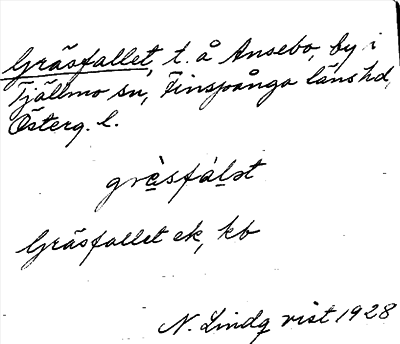 Gräsfallet, t. å Ansebo, by i
Tjällmo sn, Finspånga läns hd,
Österg. l.
grȁsfálət
Gräsfallet ek, kb
N. Lindqvist 1928